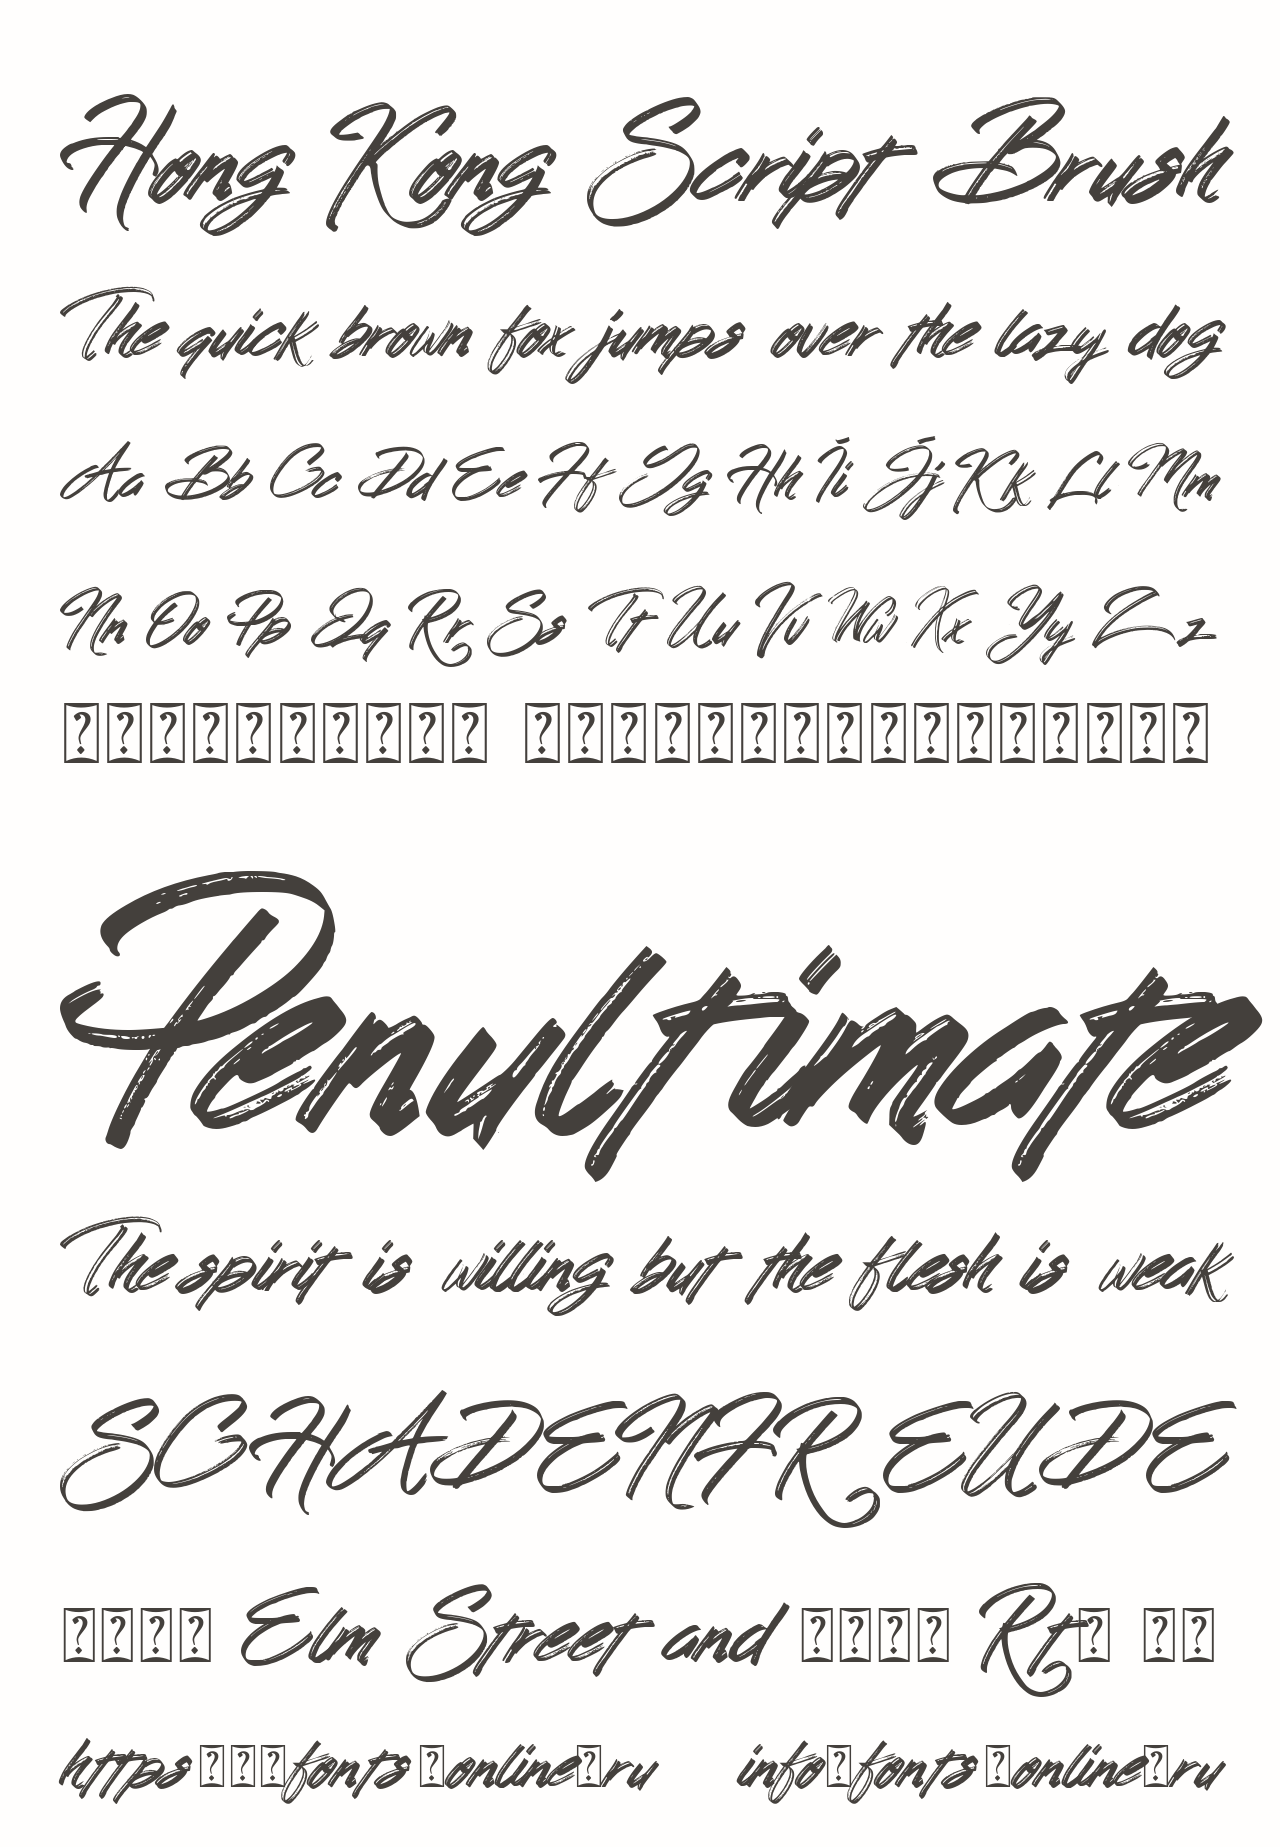 Hong Kong Script Brush
The quick brown fox jumps over the lazy dog
Aa Bb Cc Dd Ee Ff Gg Hh Ii Jj Kk Ll Mm
Nn Oo Pp Qq Rr Ss Tt Uu Vv Ww Xx Yy Zz
Penultimate
The spirit is willing but the flesh is weak
SCHADENFREUDE
Elm Street and Rt
https fonts online ru info fonts online ru